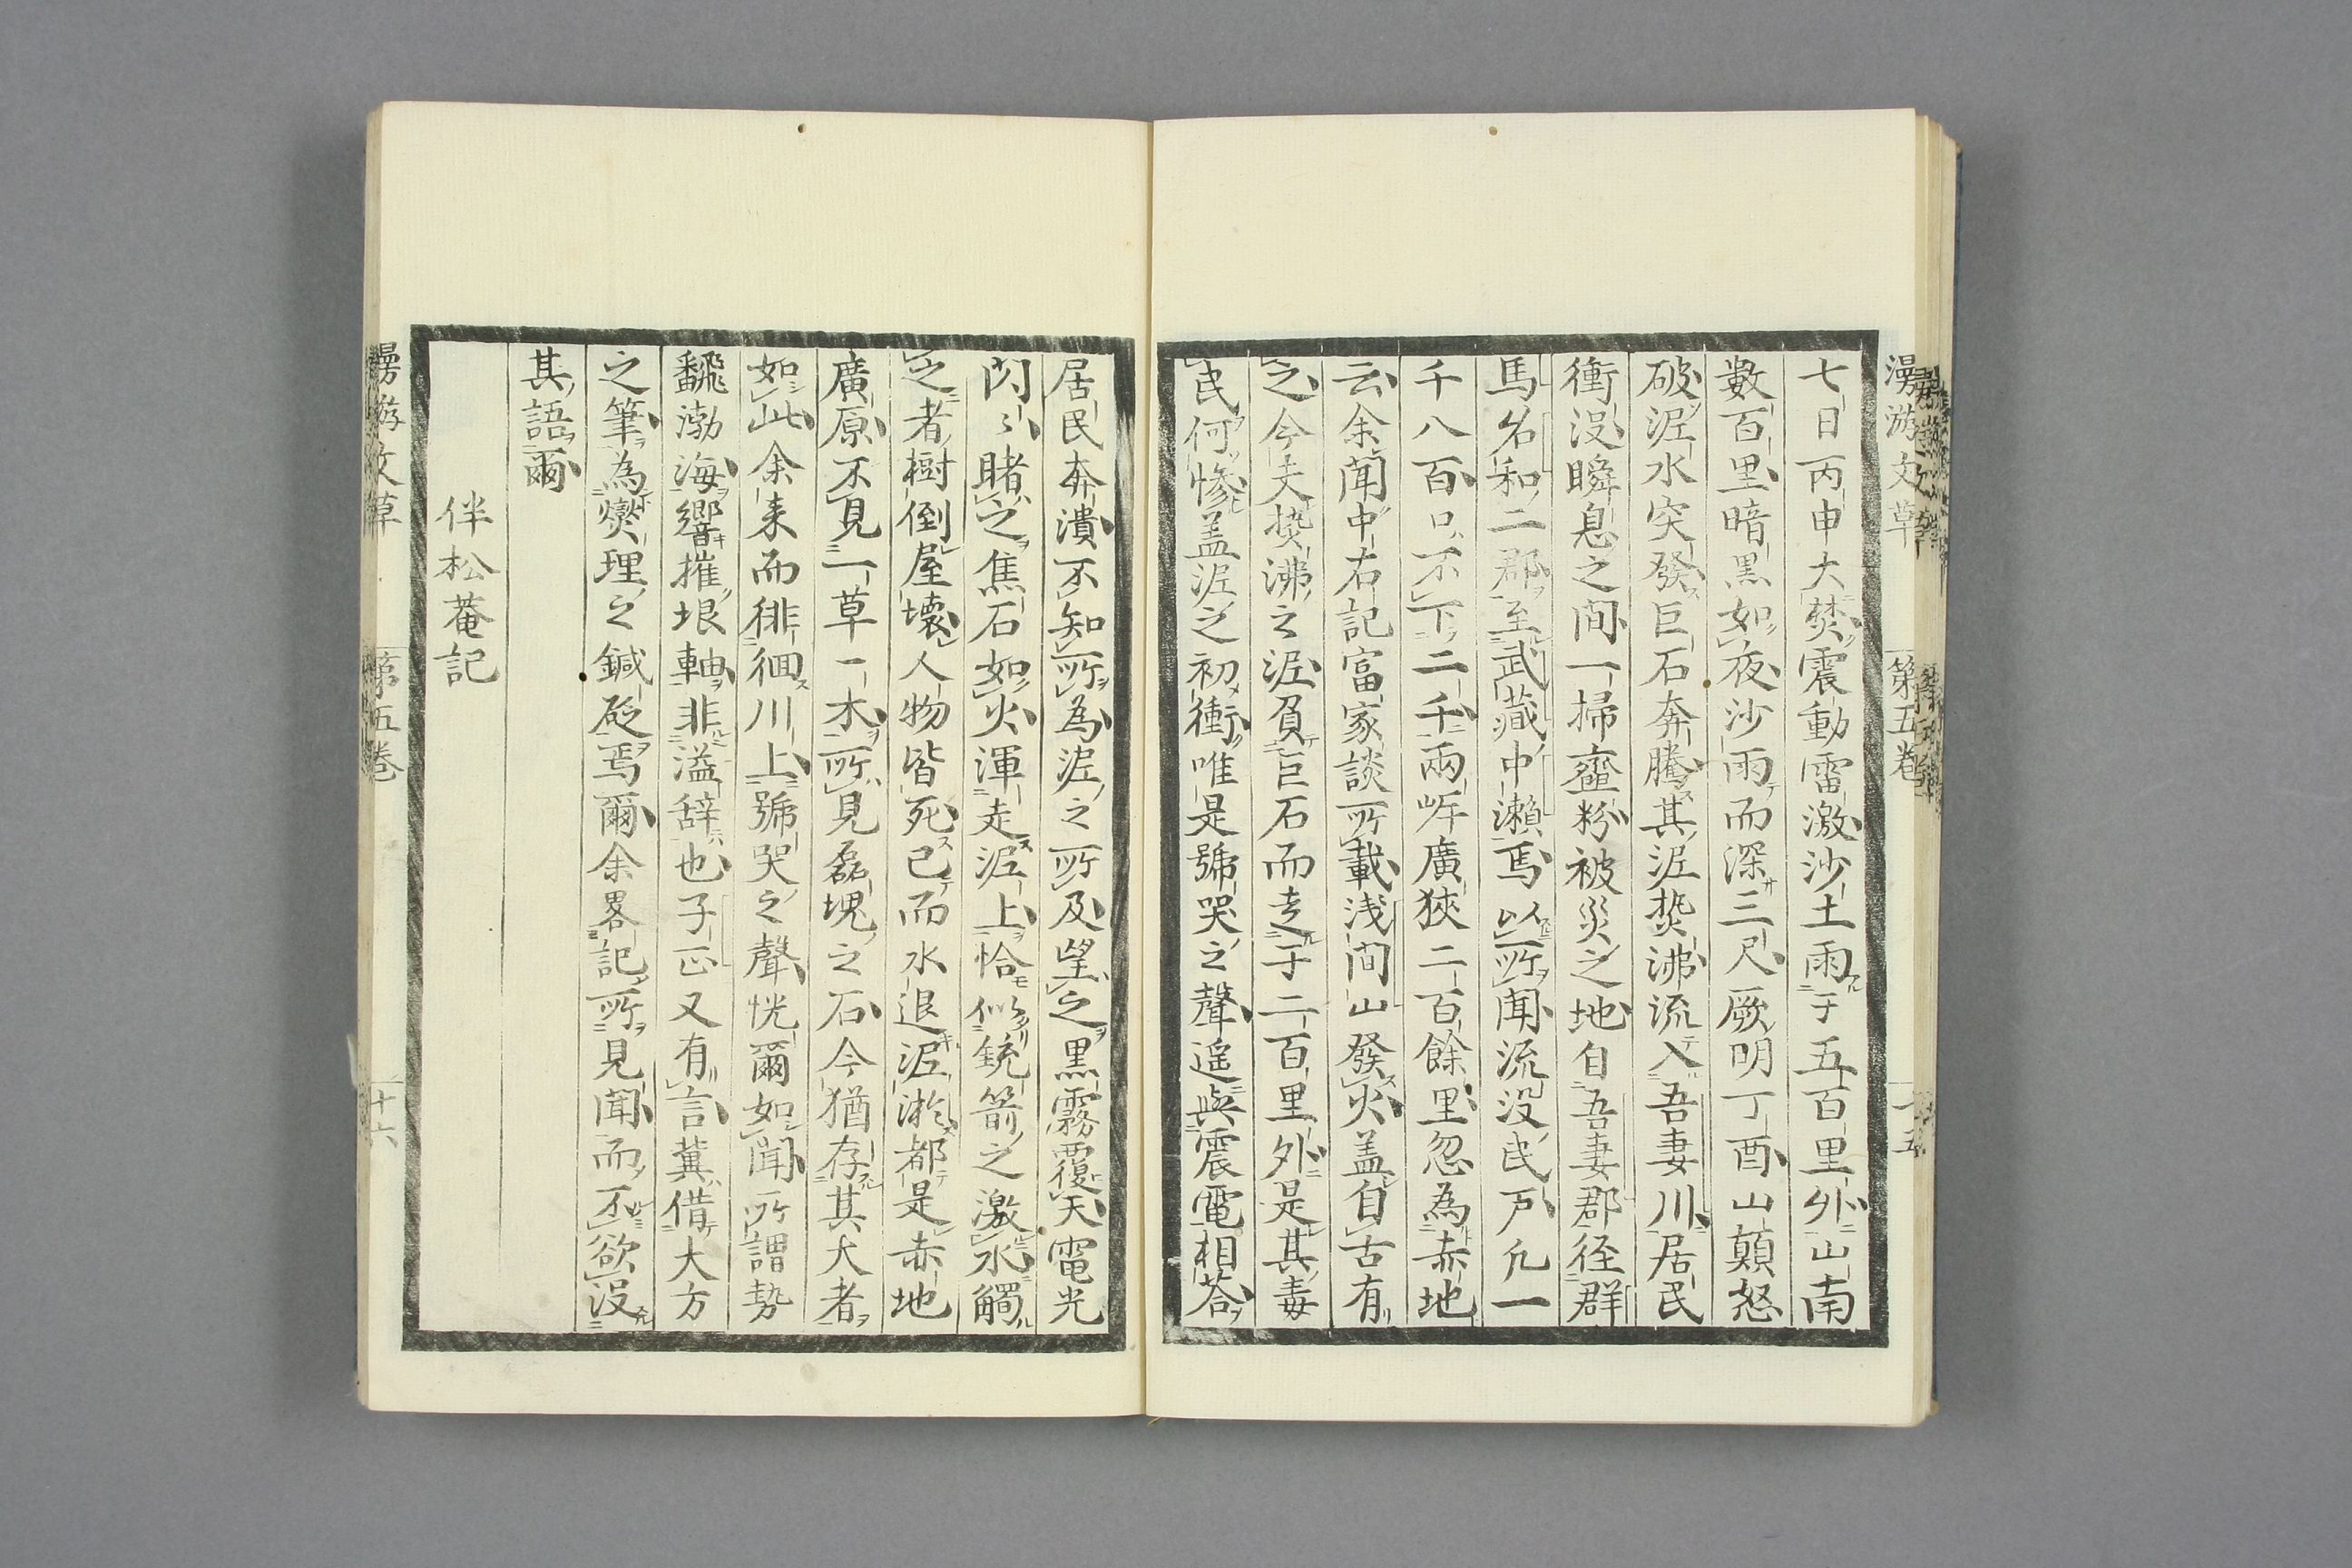 七日丙申大焚震動雷激沙土雨于五百里外山南
數百里暗黒如夜沙雨而深三尺厥明丁酉山顛怒
破泥水突發巨石奔騰其泥焚沸流入吾妻川居民
衝没瞬息之間一掃齏粉被災之地自吾妻郡徑群
馬名和二郡至武藏中瀬焉以所聞流没民戸凡一
千八百口不下二千兩岸廣狹二百餘里忽為赤地
云余聞中右記富家談所載浅間山發火盖自古有
之今夫焚沸之泥負巨石而走于二百里外是其毒
民何惨盖泥之初衝唯是號哭之聲遥與震電相荅
居民奔潰不知所為泥之所及望之黒霧覆天電光
閃〻睹之焦石如火渾走泥上恰似銃箭之激水觸
之者樹倒屋壊人物皆死已而水退泥淤都是赤地
廣原不見一草一木所見磊塊之石今猶存其大者
如此余来而徘徊川上號哭之聲恍爾如聞所謂勢
飜渤海響摧垠軸非溢辞也子正又有言冀借大方
之筆為爕理之鍼砭焉爾余畧記所見聞而不欲没
其語爾
伴松菴記
漫游文草 第五巻 十五
漫游文草 第五巻 十六